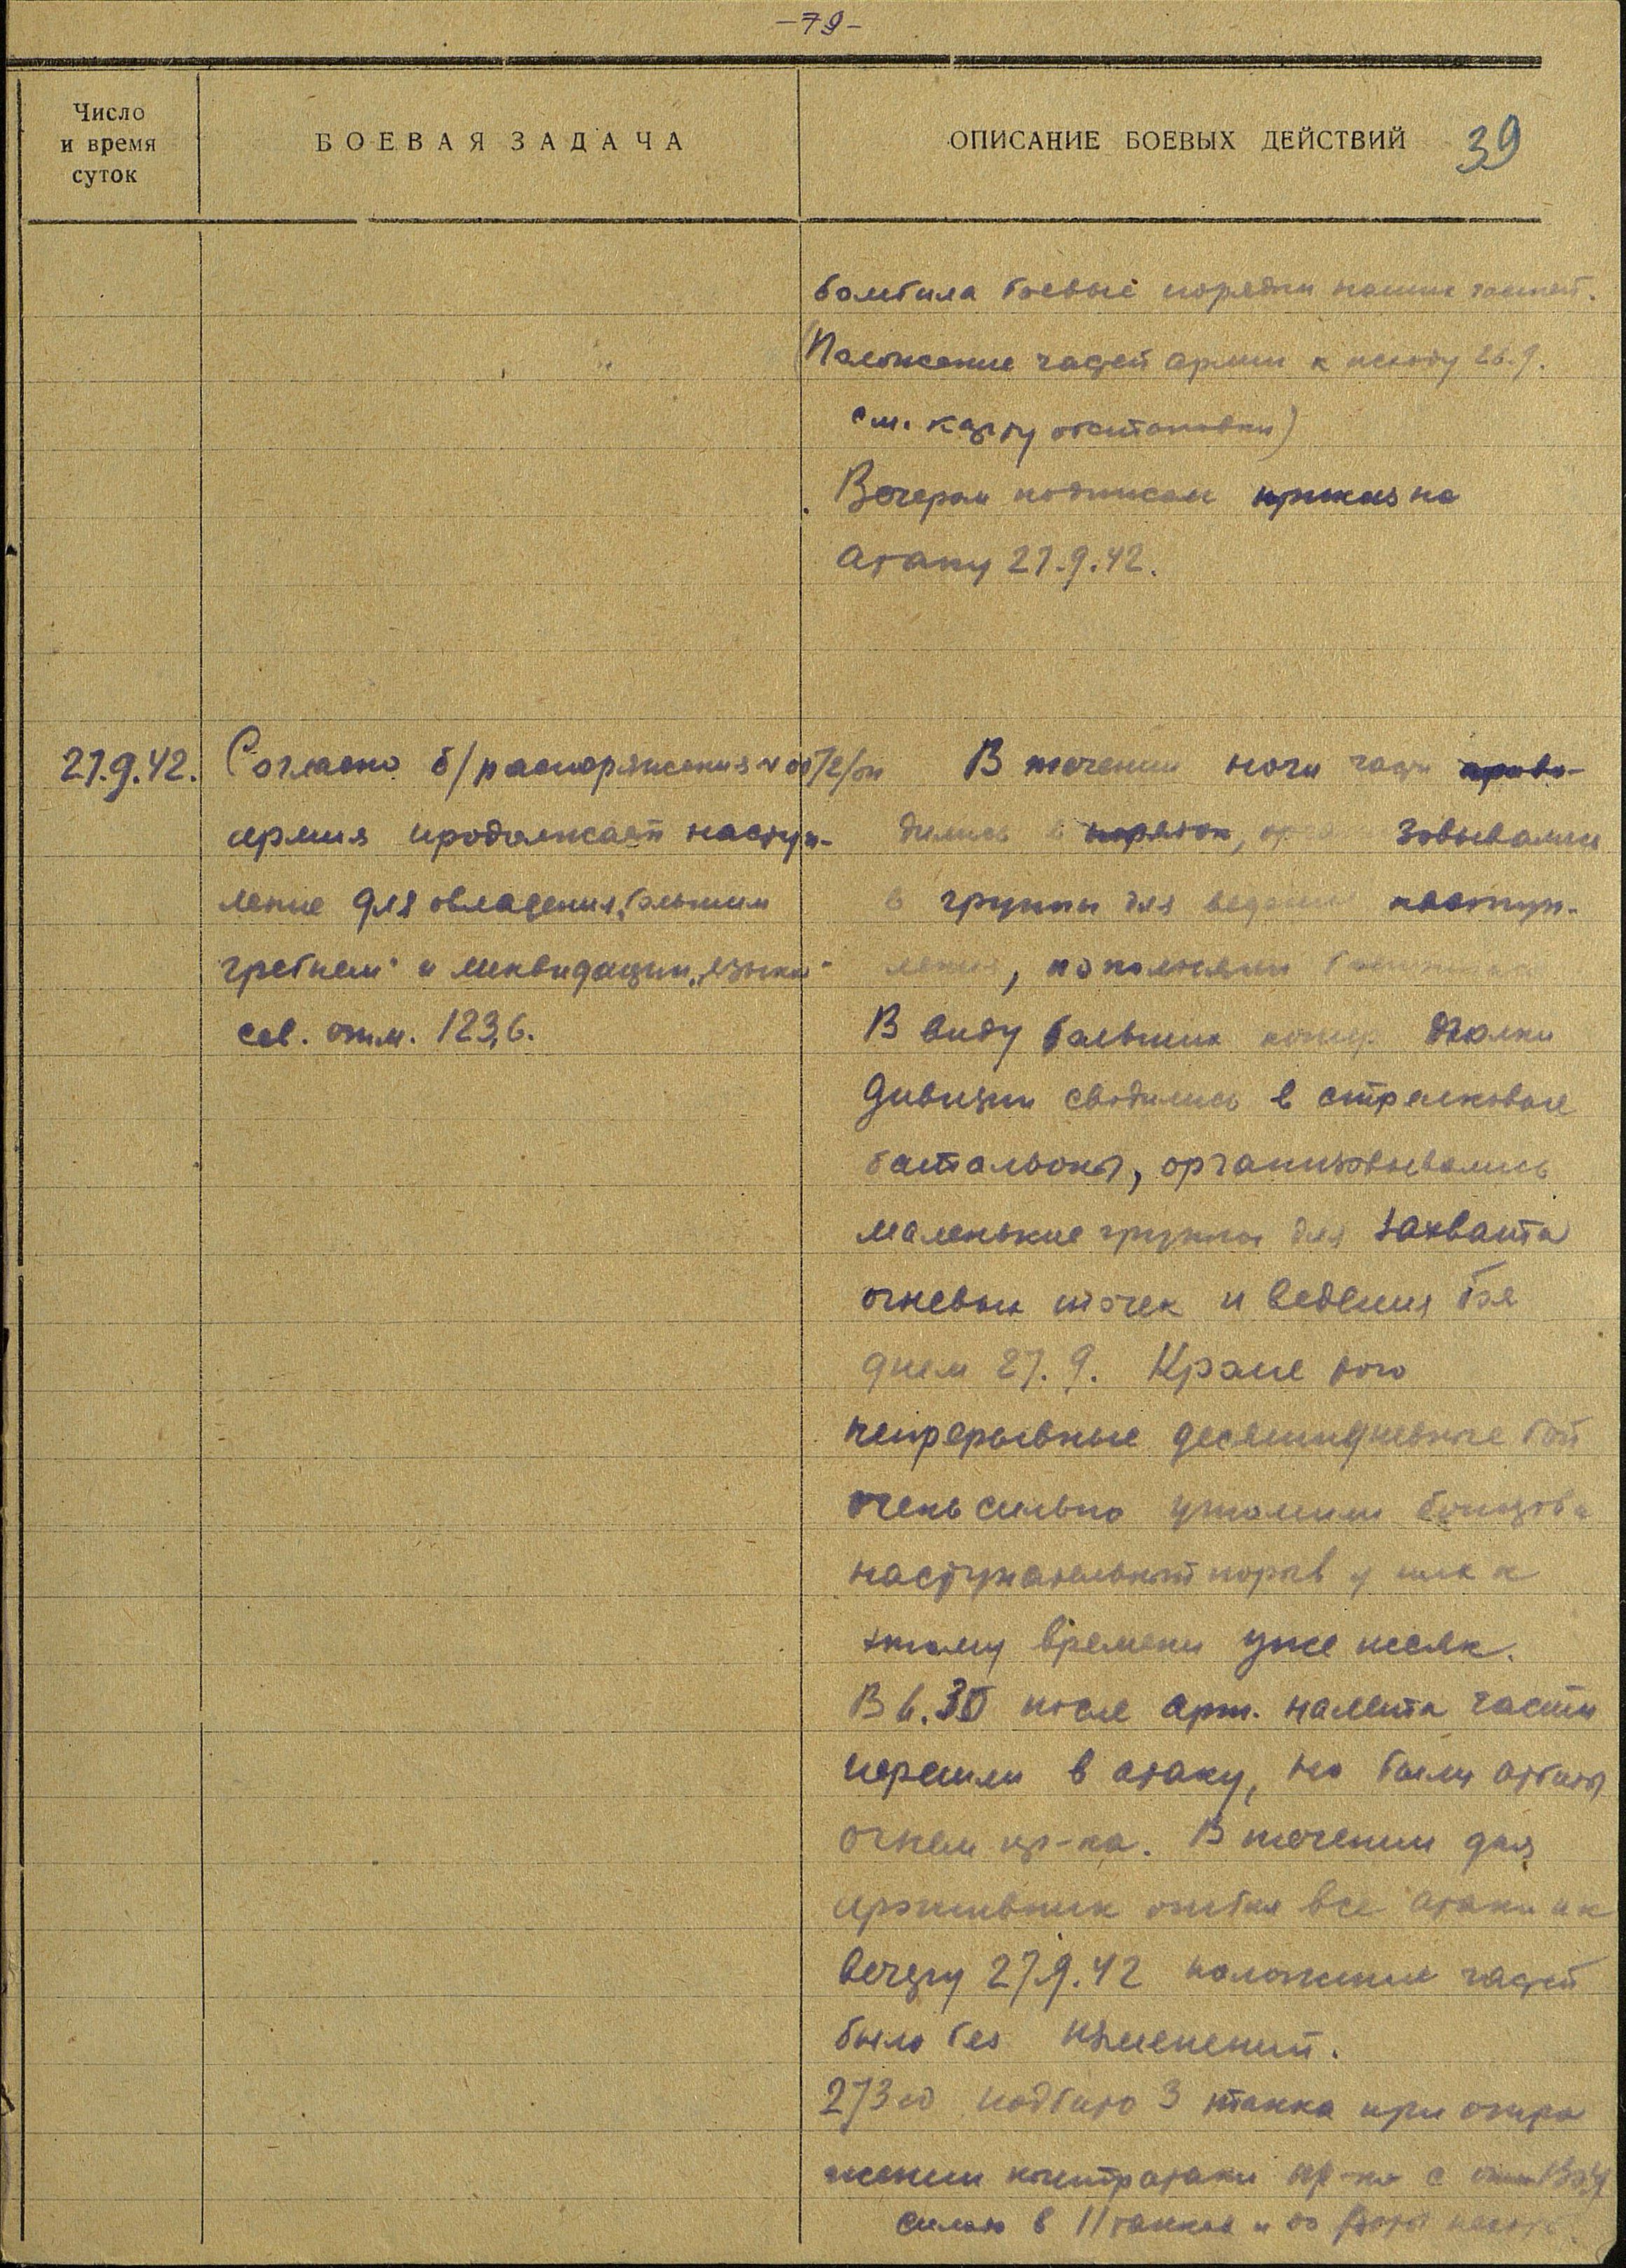 -79-
Число
и время
суток
БОЕВАЯ ЗАДАЧА
ОПИСАНИЕ БОЕВЫХ ДЕЙСТВИЙ
39
бомбила боевые порядки наших частей.
(Положение частей армии к исходу 26.9.
см. карту обстановки)
Вечером подписан приказ на
атаку 27.9.42.
27.9.42.
Согласно б/распоряжения
армия продолжает наступ-
ление для овладения „большим
гребнем" и ликвидации „языка"
сев. отм. 123,6.
В течении ночи части приво-
дились в порядок,
в группы для ведения наступ-
ления, пополняли
В виду больших полки
дивизии сводились в стрелковые
батальоны, организовывались
маленькие группы для захвата
огневых точек и ведения боя
днем 27.9. Кроме того
непрерывные десятидневные бои
очень сильно утомили бойцов и
наступательный порыв у них к
этому времени уже иссяк.
В 6.30 после арт. налета части
перешли в атаку, но были отбиты
огнем пр-ка. В течении дня
противник отбил все атаки и к
вечеру 27.9.42 положение частей
было без изменений.
273 сд подбито 3 танка при отра
жении контратаки пр-ка с
силою в 11 танков и до роты пехоты.